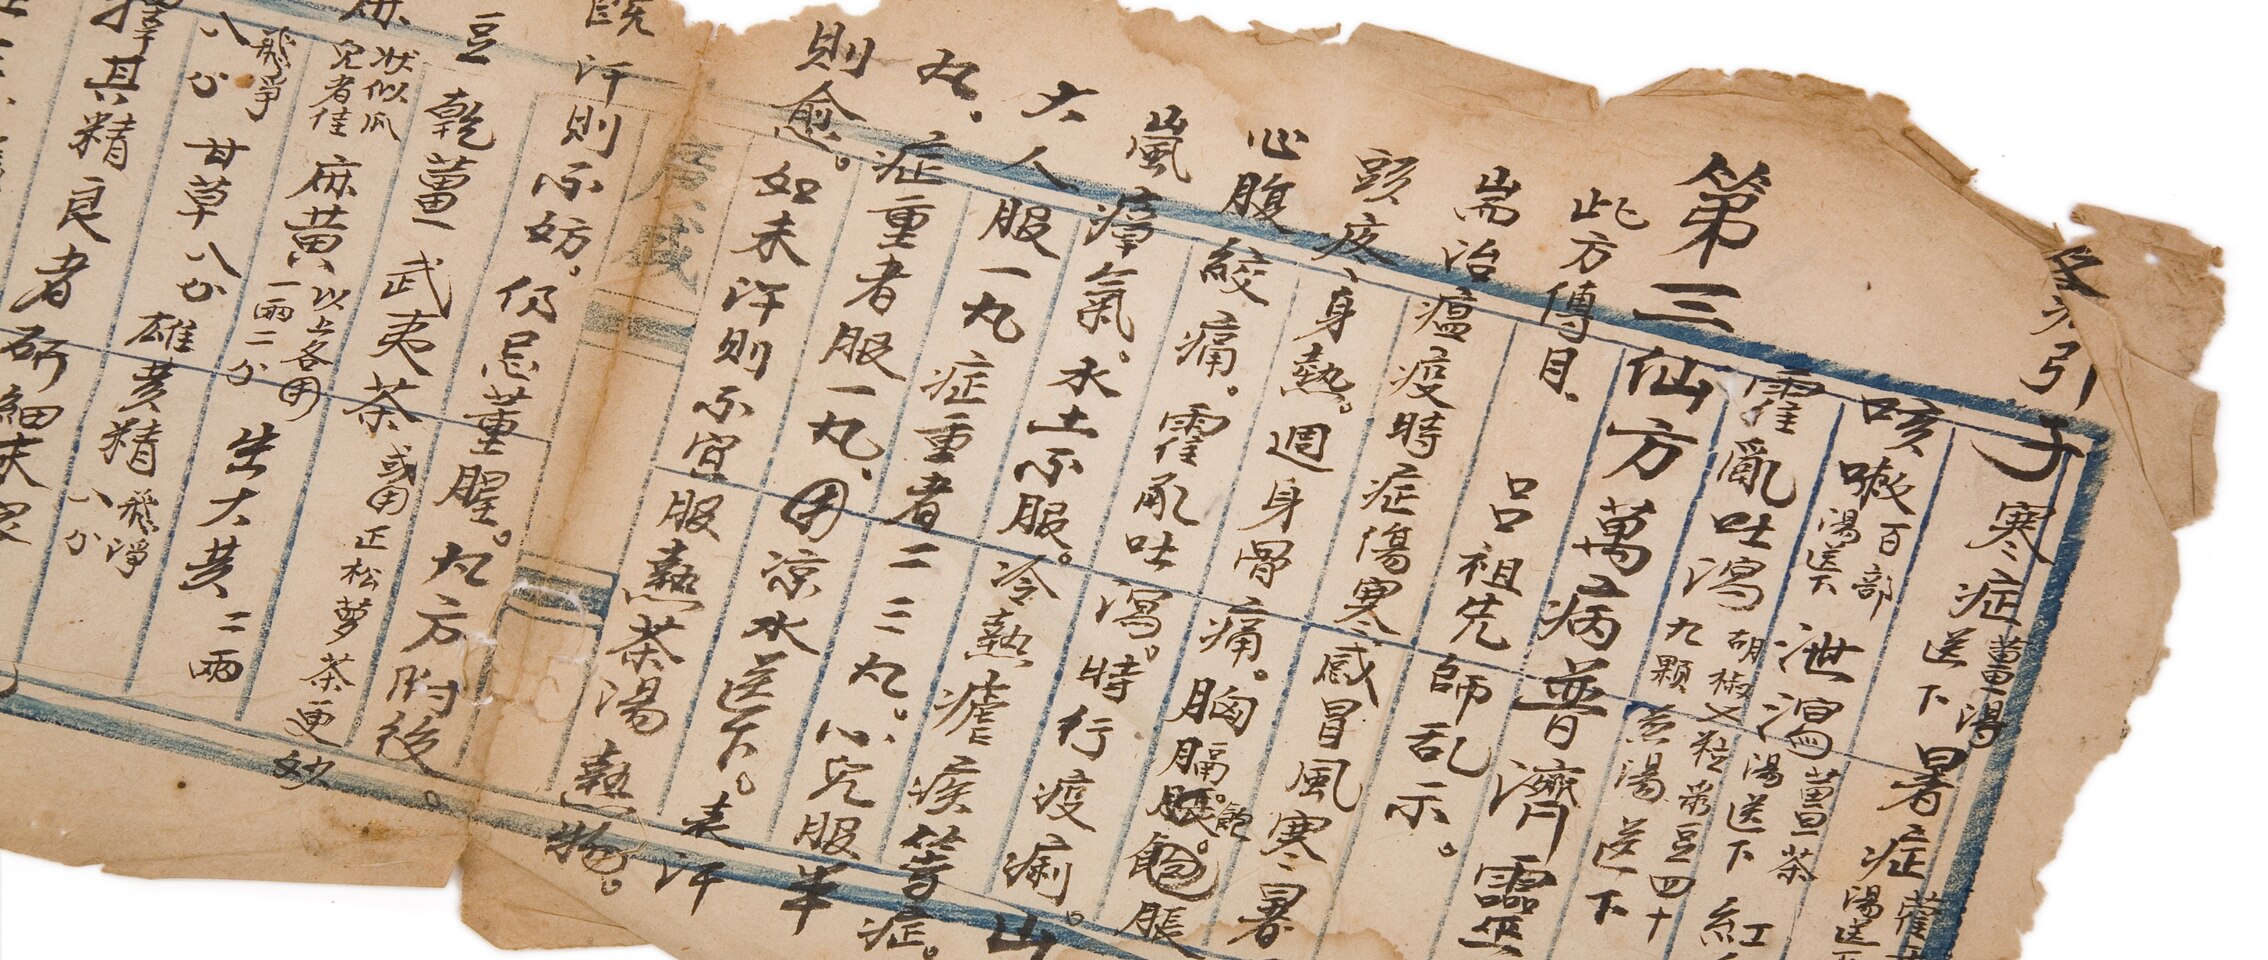 引子寒症薑湯送下暑症
咳嗽百部湯送下泄瀉薑茶湯送下紅
霍亂吐瀉胡椒九顆粒菉豆四十煎湯送下
第三仙方萬病普濟靈
此方傳自呂祖先師乩示。
耑治瘟疫時症傷寒感冒風寒暑
頭疼身熱。週身骨痛。胸膈脹飽。脹
心腹絞痛。霍亂吐瀉。時行疫痢。山
嵐瘴氣。水土不服。冷熱瘧疾等症。
大人服一丸症重者二三丸。小兒服半
丸、症重者服一丸、用涼水送下。表汗
則愈。如未汗則不宜服熱茶湯熱物。
既汗則不妨。仍忌葷腥。丸方附後。
豆乾薑武夷茶或用正松蘿茶更妙
狀似瓜兒者佳麻黃以上各用一兩二分生大黃二兩
飛淨八分甘草八分雄黃精飛淨八分
擇其精良者研細末